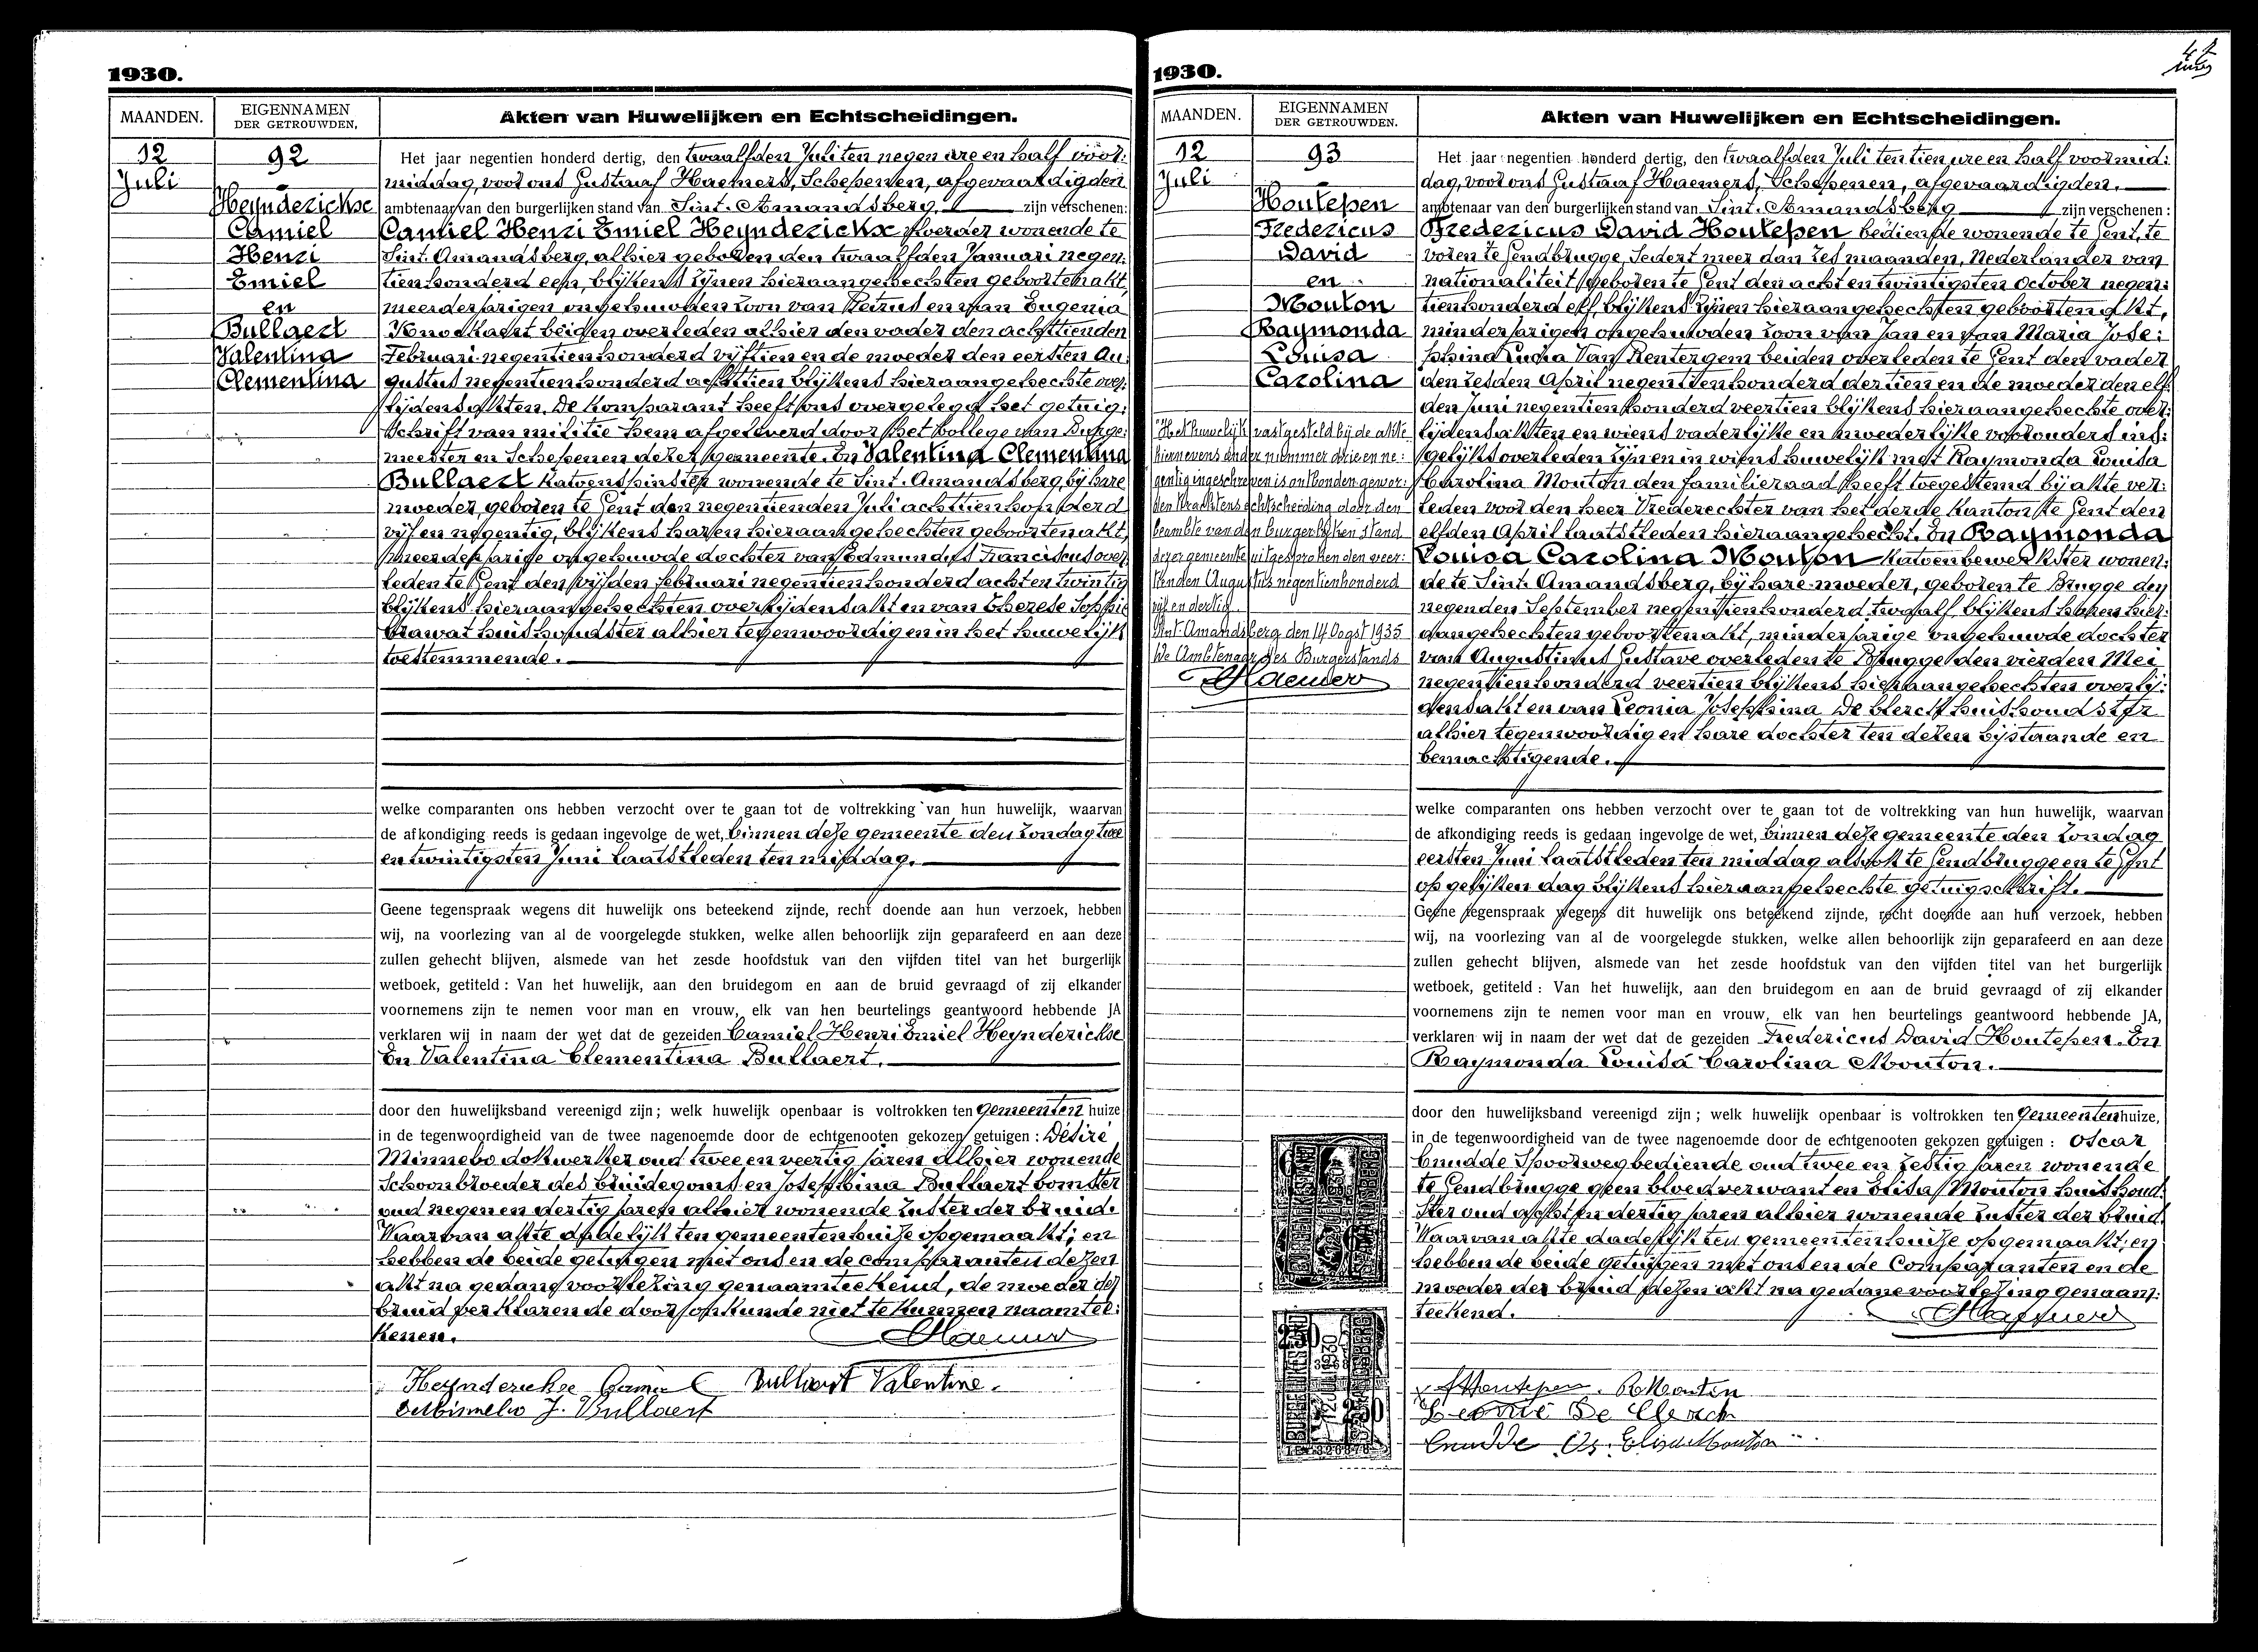 1930.
MAANDEN.
EIGENNAMEN
DER GETROUWDEN.
Akten van Huwelijken en Echtscheidingen.
12
Juli
92
Heynderickse
Camiel
Henri
Emiel
en
Bullaert
Valentina
Clementina
Het jaar negentien honderd dertig, den twaalfden Juli ten negen ure en half voor:
middag, voor ons Gustaaf Haemers, Schepenen, afgevaardigden
ambtenaar van den burgerlijken stand van Sint-Amandsberg, zijn verschenen:
Camiel Henri Emiel Heynderickse wonende te
Sint-Amandsberg, alhier geboren den twaalfden Januari negen:
tienhonderd een, blijkens zijnen hieraangehechten geboortenakt,
meerderjarigen ongehuwden zoon van Petrus en van Eugenia
beiden overleden alhier den vader den achttienden
Februari negentienhonderd vijftien en de moeder den eersten Au:
gustus negentienhonderd achttien blijkens hieraangehechte over:
lijdensakten. De komparant heeft ons overgelegd het getuig:
schrift van militie hem afgeleverd door het kollege van Burge:
meester en Schepenen dezer gemeente. En Valentina Clementina
Bullaert Katoenspinster wonende te Sint-Amandsberg, bij hare
moeder, geboren te Gent den negentienden Juli achttienhonderd
vijf en negentig, blijkens haren hieraangehechten geboortenakt,
meerderjarige ongehuwde dochter van Edmundus Franciscus over:
leden te Gent den vijfden februari negentienhonderd acht en twintig
blijkens hieraangehechten overlijdensakt en van Therese Sophie
huishoudster alhier tegenwoordig en in het huwelijk
toestemmende.
welke comparanten ons hebben verzocht over te gaan tot de voltrekking van hun huwelijk, waarvan
de afkondiging reeds is gedaan ingevolge de wet, binnen deze gemeente den zondag twee
en twintigsten Juni laatstleden ten middag.
Geene tegenspraak wegens dit huwelijk ons beteekend zijnde, recht doende aan hun verzoek, hebben
wij, na voorlezing van al de voorgelegde stukken, welke allen behoorlijk zijn geparafeerd en aan deze
zullen gehecht blijven, alsmede van het zesde hoofdstuk van den vijfden titel van het burgerlijk
wetboek, getiteld : Van het huwelijk, aan den bruidegom en aan de bruid gevraagd of zij elkander
voornemens zijn te nemen voor man en vrouw, elk van hen beurtelings geantwoord hebbende JA
verklaren wij in naam der wet dat de gezeiden Camiel Henri Emiel Heynderickse
En Valentina Clementina Bullaert.
door den huwelijksband vereenigd zijn ; welk huwelijk openbaar is voltrokken ten Gemeenten huize
in de tegenwoordigheid van de twee nagenoemde door de echtgenooten gekozen getuigen : Désiré
Minnebo dokwerker oud twee en veertig jaren alhier wonende
Schoonbroeder des bruidegoms en Josephina Bullaert bomster
oud negen en dertig jaren alhier wonende zuster der bruid.
Waarvan akte dadelijk ten gemeentenhuize opgemaakt; en
hebben de beide getuigen met ons en de comparanten dezen
akt na gedane voorlezing genaamteekend, de moeder der
bruid verklarende door onkunde niet te kunnen naamtee:
kenen.
Haemers
Heynderickse Camiel Bullaert Valentine.
J. Bullaert
1930.
MAANDEN.
EIGENNAMEN
DER GETROUWDEN.
Akten van Huwelijken en Echtscheidingen.
12
Juli
93
Houtepen
Fredericus
David
en
Mouton
Raymonda
Louisa
Carolina
Het huwelijk vastgesteld bij de akte
hiernevens onder nummer drie en ne:
gentig ingeschreven is ontbonden gewor:
den krachtens echtscheiding door den
beambte van den burgerlijken stand
dezer gemeente uitgesproken den veer:
tienden Augustus negentienhonderd
vijf en dertig.
Sint-Amandsberg den 14 Oogst 1935
De Ambtenaar des Burgerstands
Haemers
Het jaar negentien honderd dertig, den twaalfden Juli ten tien ure en half voormid:
dag, voor ons Gustaaf Haemers, Schepenen, afgevaardigden
ambtenaar van den burgerlijken stand van Sint-Amandsberg zijn verschenen :
Fredericus David Houtepen bediende wonende te Gent, te
voren te Gendbrugge, Sedert meer dan zes maanden, Nederlander van
nationaliteit, geboren te Gent den acht en twintigsten October negen:
tienhonderd elf, blijkens zijnen hieraangehechten geboortenakt,
minderjarigen ongehuwden zoon van Jan en van Maria Jose:
phina Van Rentergem beiden overleden te Gent den vader
den zesden April negentienhonderd dertien en de moeder den elf:
den Juni negentienhonderd veertien blijkens hieraangehechte over:
lijdensakten en wiens vaderlijke en moederlijke voorouders ins:
gelijks overleden zijn en in wiens huwelijk met Raymonda Louisa
Carolina Mouton den familieraad heeft toegestemd bij akte ver:
leden voor den heer Vrederechter van het derde Kanton te Gent den
elfden April laatstleden hieraangehecht. En Raymonda
Louisa Carolina Mouton Katoenbewerkster wonen:
de te Sint-Amandsberg, bij hare moeder, geboren te Brugge den
negenden September negentienhonderd twaalf, blijkens haren hier:
aangehechten geboortenakt, minderjarige ongehuwde dochter
van Augustinus Gustave overleden te Brugge den vierden Mei
negentienhonderd veertien blijkens hieraangehechten overlij:
densakt en van Leonia Josephina De Clerck huishoudster
alhier tegenwoordig en hare dochter ten dezen bijstaande en
bemachtigende.
welke comparanten ons hebben verzocht over te gaan tot de voltrekking van hun huwelijk, waarvan
de afkondiging reeds is gedaan ingevolge de wet, binnen deze gemeente den zondag
eersten Juni laatstleden ten middag alsook te Gendbrugge en te Gent
op gelijken dag blijkens hieraangehechte getuigschrift.
Geene tegenspraak wegens dit huwelijk ons beteekend zijnde, recht doende aan hun verzoek, hebben
wij, na voorlezing van al de voorgelegde stukken, welke allen behoorlijk zijn geparafeerd en aan deze
zullen gehecht blijven, alsmede van het zesde hoofdstuk van den vijfden titel van het burgerlijk
wetboek, getiteld : Van het huwelijk, aan den bruidegom en aan de bruid gevraagd of zij elkander
voornemens zijn te nemen voor man en vrouw, elk van hen beurtelings geantwoord hebbende JA,
verklaren wij in naam der wet dat de gezeiden Fredericus David Houtepen. En
Raymonda Louisa Carolina Mouton.
door den huwelijksband vereenigd zijn ; welk huwelijk openbaar is voltrokken ten Gemeentenhuize,
in de tegenwoordigheid van de twee nagenoemde door de echtgenooten gekozen getuigen : Oscar
Cnudde Spoorwegbediende oud twee en zestig jaren wonende
te Gendbrugge geen bloedverwant en Elisa Mouton huishoud:
ster oud acht en dertig jaren alhier wonende zuster der bruid.
Waarvan akte dadelijk ten gemeentenhuize opgemaakt; en
hebben de beide getuigen met ons en de Comparanten en de
moeder der bruid dezen akt na gedane voorlezing genaam:
teekend.
Haemers
Houtepen. R Mouton
Leonie De Clerck
Cnudde Os. Elisa Mouton